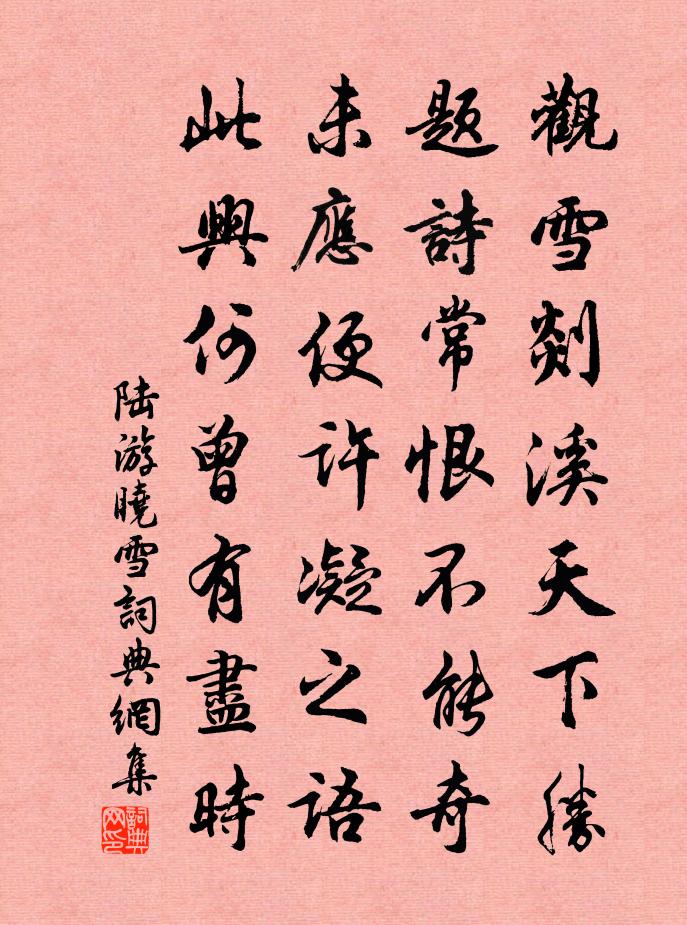 觀雪剡溪天下勝
題詩常恨不能奇
未應便許凝之語
此興何曾有盡時
陆游曉雪詞典網集
詞典网印